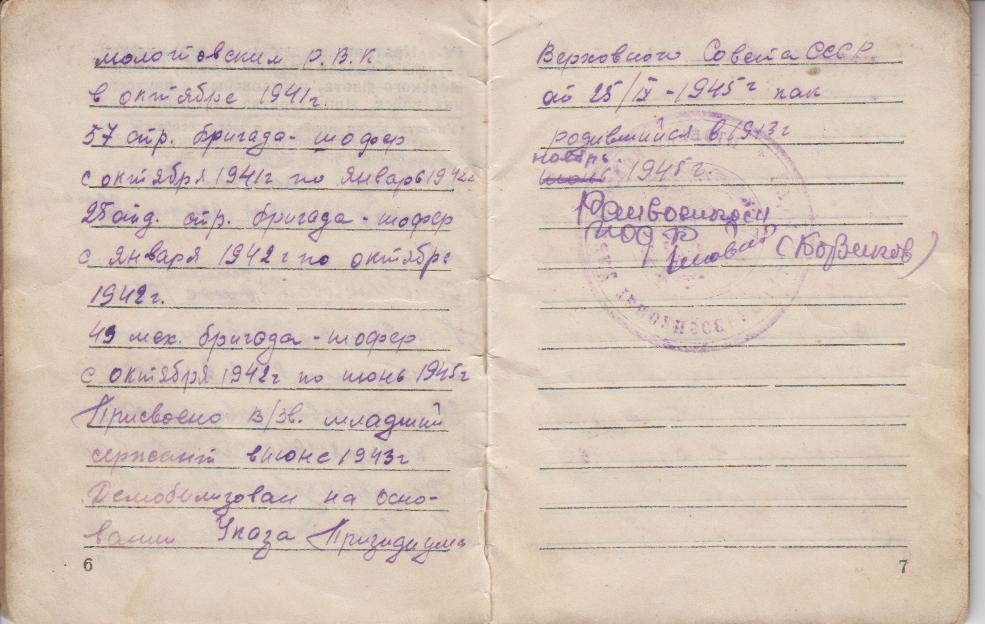 молотовским Р.В.К.
в октябре 1941г.
57 стр. бригада - шофер
с октября 1941г по январь 1942г
25 отд. стр. бригада - шофер
с января 1942г по октябрь
1942г.
49 мех. бригада - шофер
с октября 1942г по июнь 1945г
Присвоено в/зв. младший
сержант в июне 1943г
Демобилизован на осно-
вании Указа Призидиума
6
Верховного Совета СССР
от 25/IX - 1945г как
родившийся в 1913г
ноябрь
июнь 1945г.
Райвоенком
7